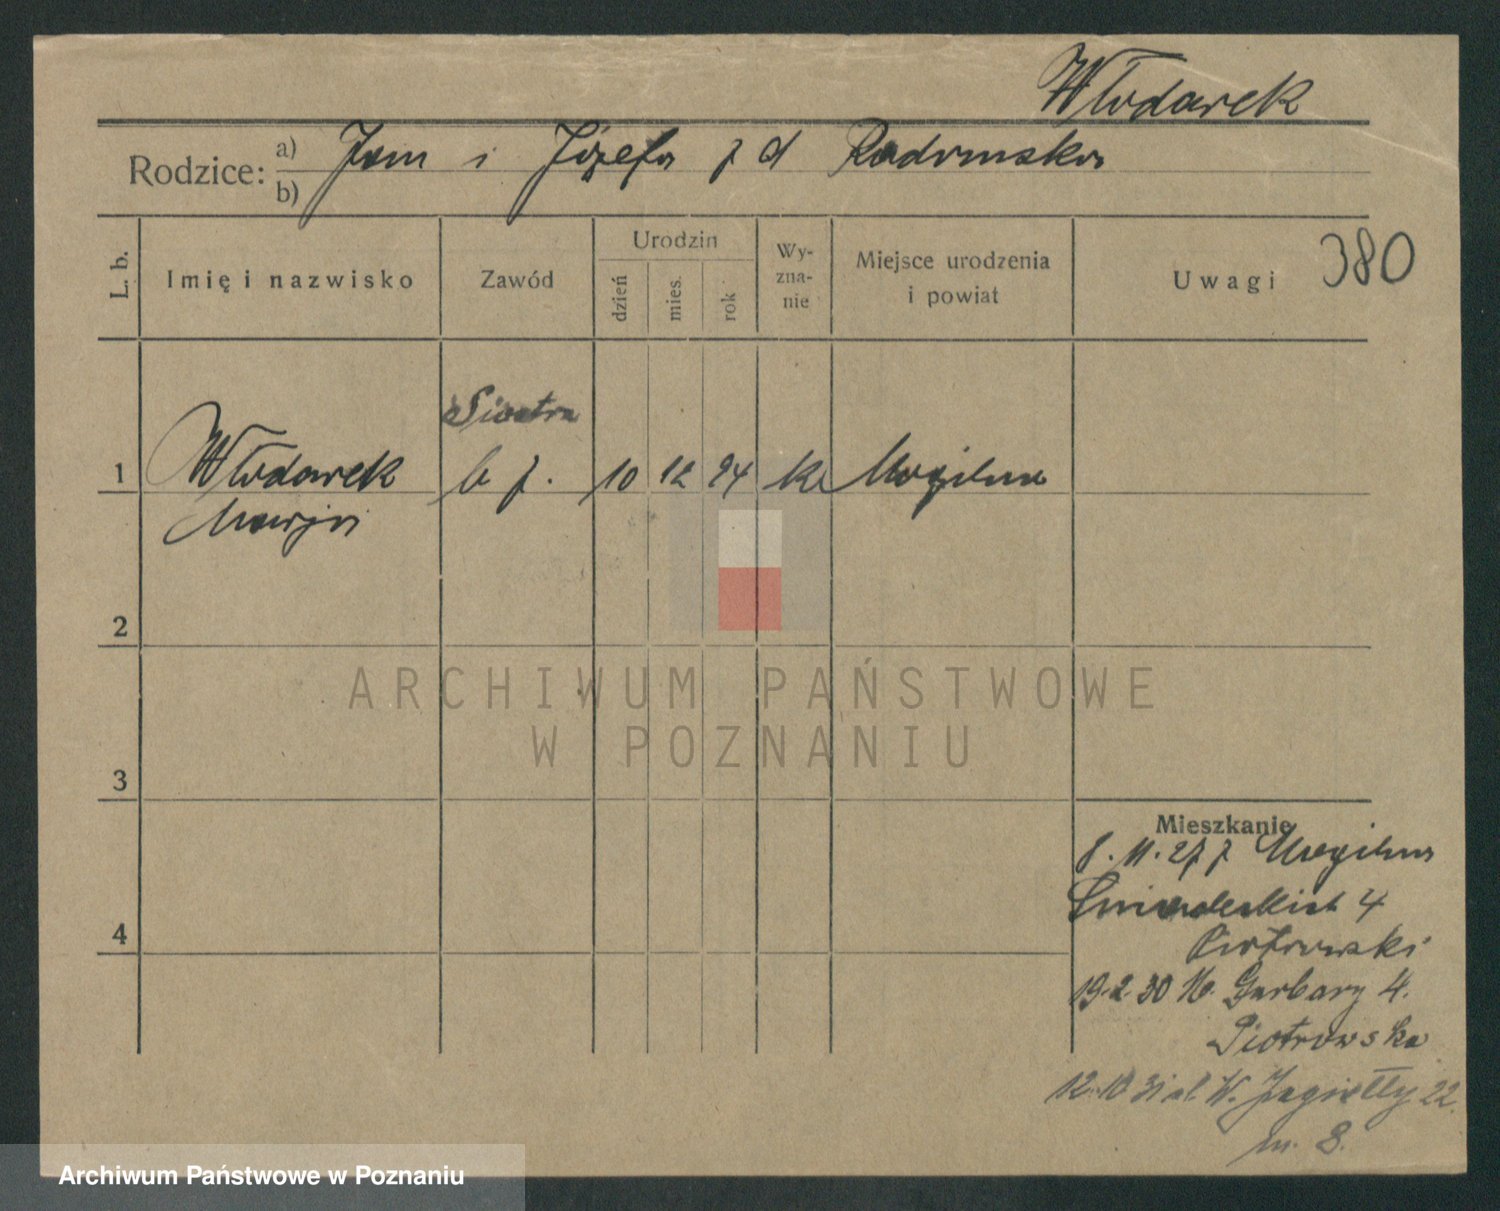 Włodarek
Rodzice: a) Jan i Józefa z d Radomska
b)
L. b. Imię i nazwisko Zawód Urodzin dzień mies. rok Wy-zna-nie Miejsce urodzenia i powiat Uwagi 380
Siostra
1 Włodarek b z. 10 12 94 k Mogilno
Marja
2
ARCHIWUM PAŃSTWOWE
W POZNANIU
3
Mieszkanie
8.11.27 z Mogilna
4 Śniadeckich 4
Piotrowski
19.2 30 Garbary 4.
Piotrowska
12.10 31 ul. W. Jagiełły 22.
m. 8.
Archiwum Państwowe w Poznaniu